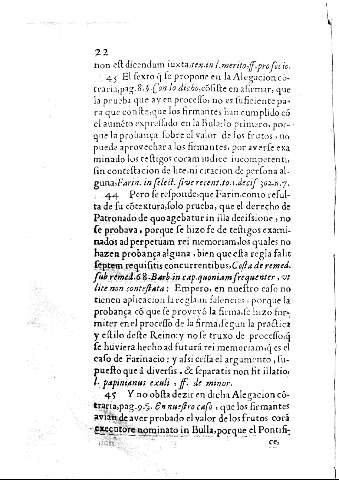 22
non est dicendum iuxta, tex. in l. merito, ff. pro socio.
43 El sexto q̃ se propone en la Alegacion cõ-
traria, pag. 8. §. Con lo dicho, cõsiste en afirmar, que
la prueba que ay en processo, no es suficiente pa-
ra que conste, que los firmantes han cumplido cõ
el aumẽto expressado en la Bula: lo primero, por-
que la probança sobre el valor de los frutos, no
puede aprovechar a los firmantes, por averse exa-
minado los testigos coram iudice incompetenti,
sin contestacion de lite, ni citacion de persona al-
guna, Farin. in select. sive recent. to. 1. decis. 302. n. 7.
44 Pero se responde, que Farin. como resul-
ta de su cõtextura, solo prueba, que el derecho de
Patronado de quo agebatur in illa decissione, no
se probava, porque se hizo fe de testigos exami-
nados ad perpetuam rei memoriam, los quales no
hazen probança alguna, bien que esta regla falit
septem requisitis concurrentibus, Costa de remed.
sub remed. 68. Barb. in cap. quoniam frequenter, ut
lite non contestata: Empero, en nuestro caso no
tienen aplicacion la regla ni falencias, porque la
probança cõ que se proveyò la firma, se hizo for-
miter en el processo de la firma, segun la practica
y estilo deste Reino: y no se truxo de processo, q̃
se huviera hecho ad futurã rei memoram, q̃ es el
caso de Farinacio; y assi cessa el argumento, su-
puesto que à diversis, & separatis non fit illatio,
l. papinianus exuli, ff. de minor.
45 Y no obsta dezir en dicha Alegacion cõ-
traria, pag. 9. §. En nuestro caso, que los firmantes
avian de aver probado el valor de los frutos corã
executore nominato in Bulla, porque el Pontifi-
ce,